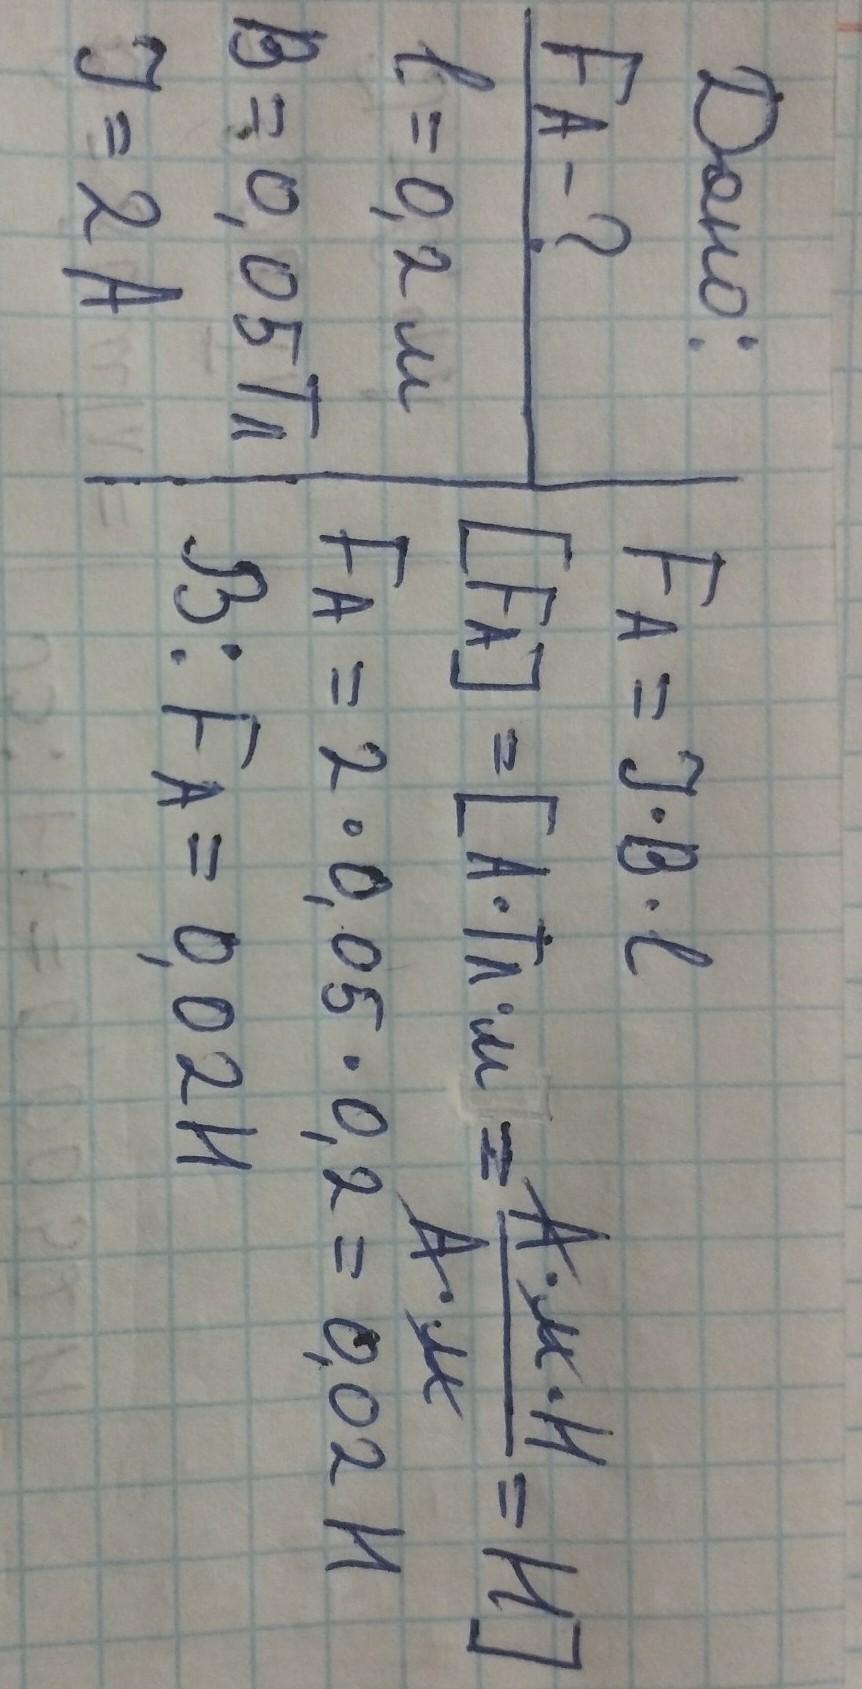 Дано:
F_A - ?
l = 0,2 м
B = 0,05 Тл
I = 2 А
F_A = I · B · l
[F_A] = [А · Тл · м = А · м · Н / А · м = Н]
F_A = 2 · 0,05 · 0,2 = 0,02 Н
В: F_A = 0,02 Н